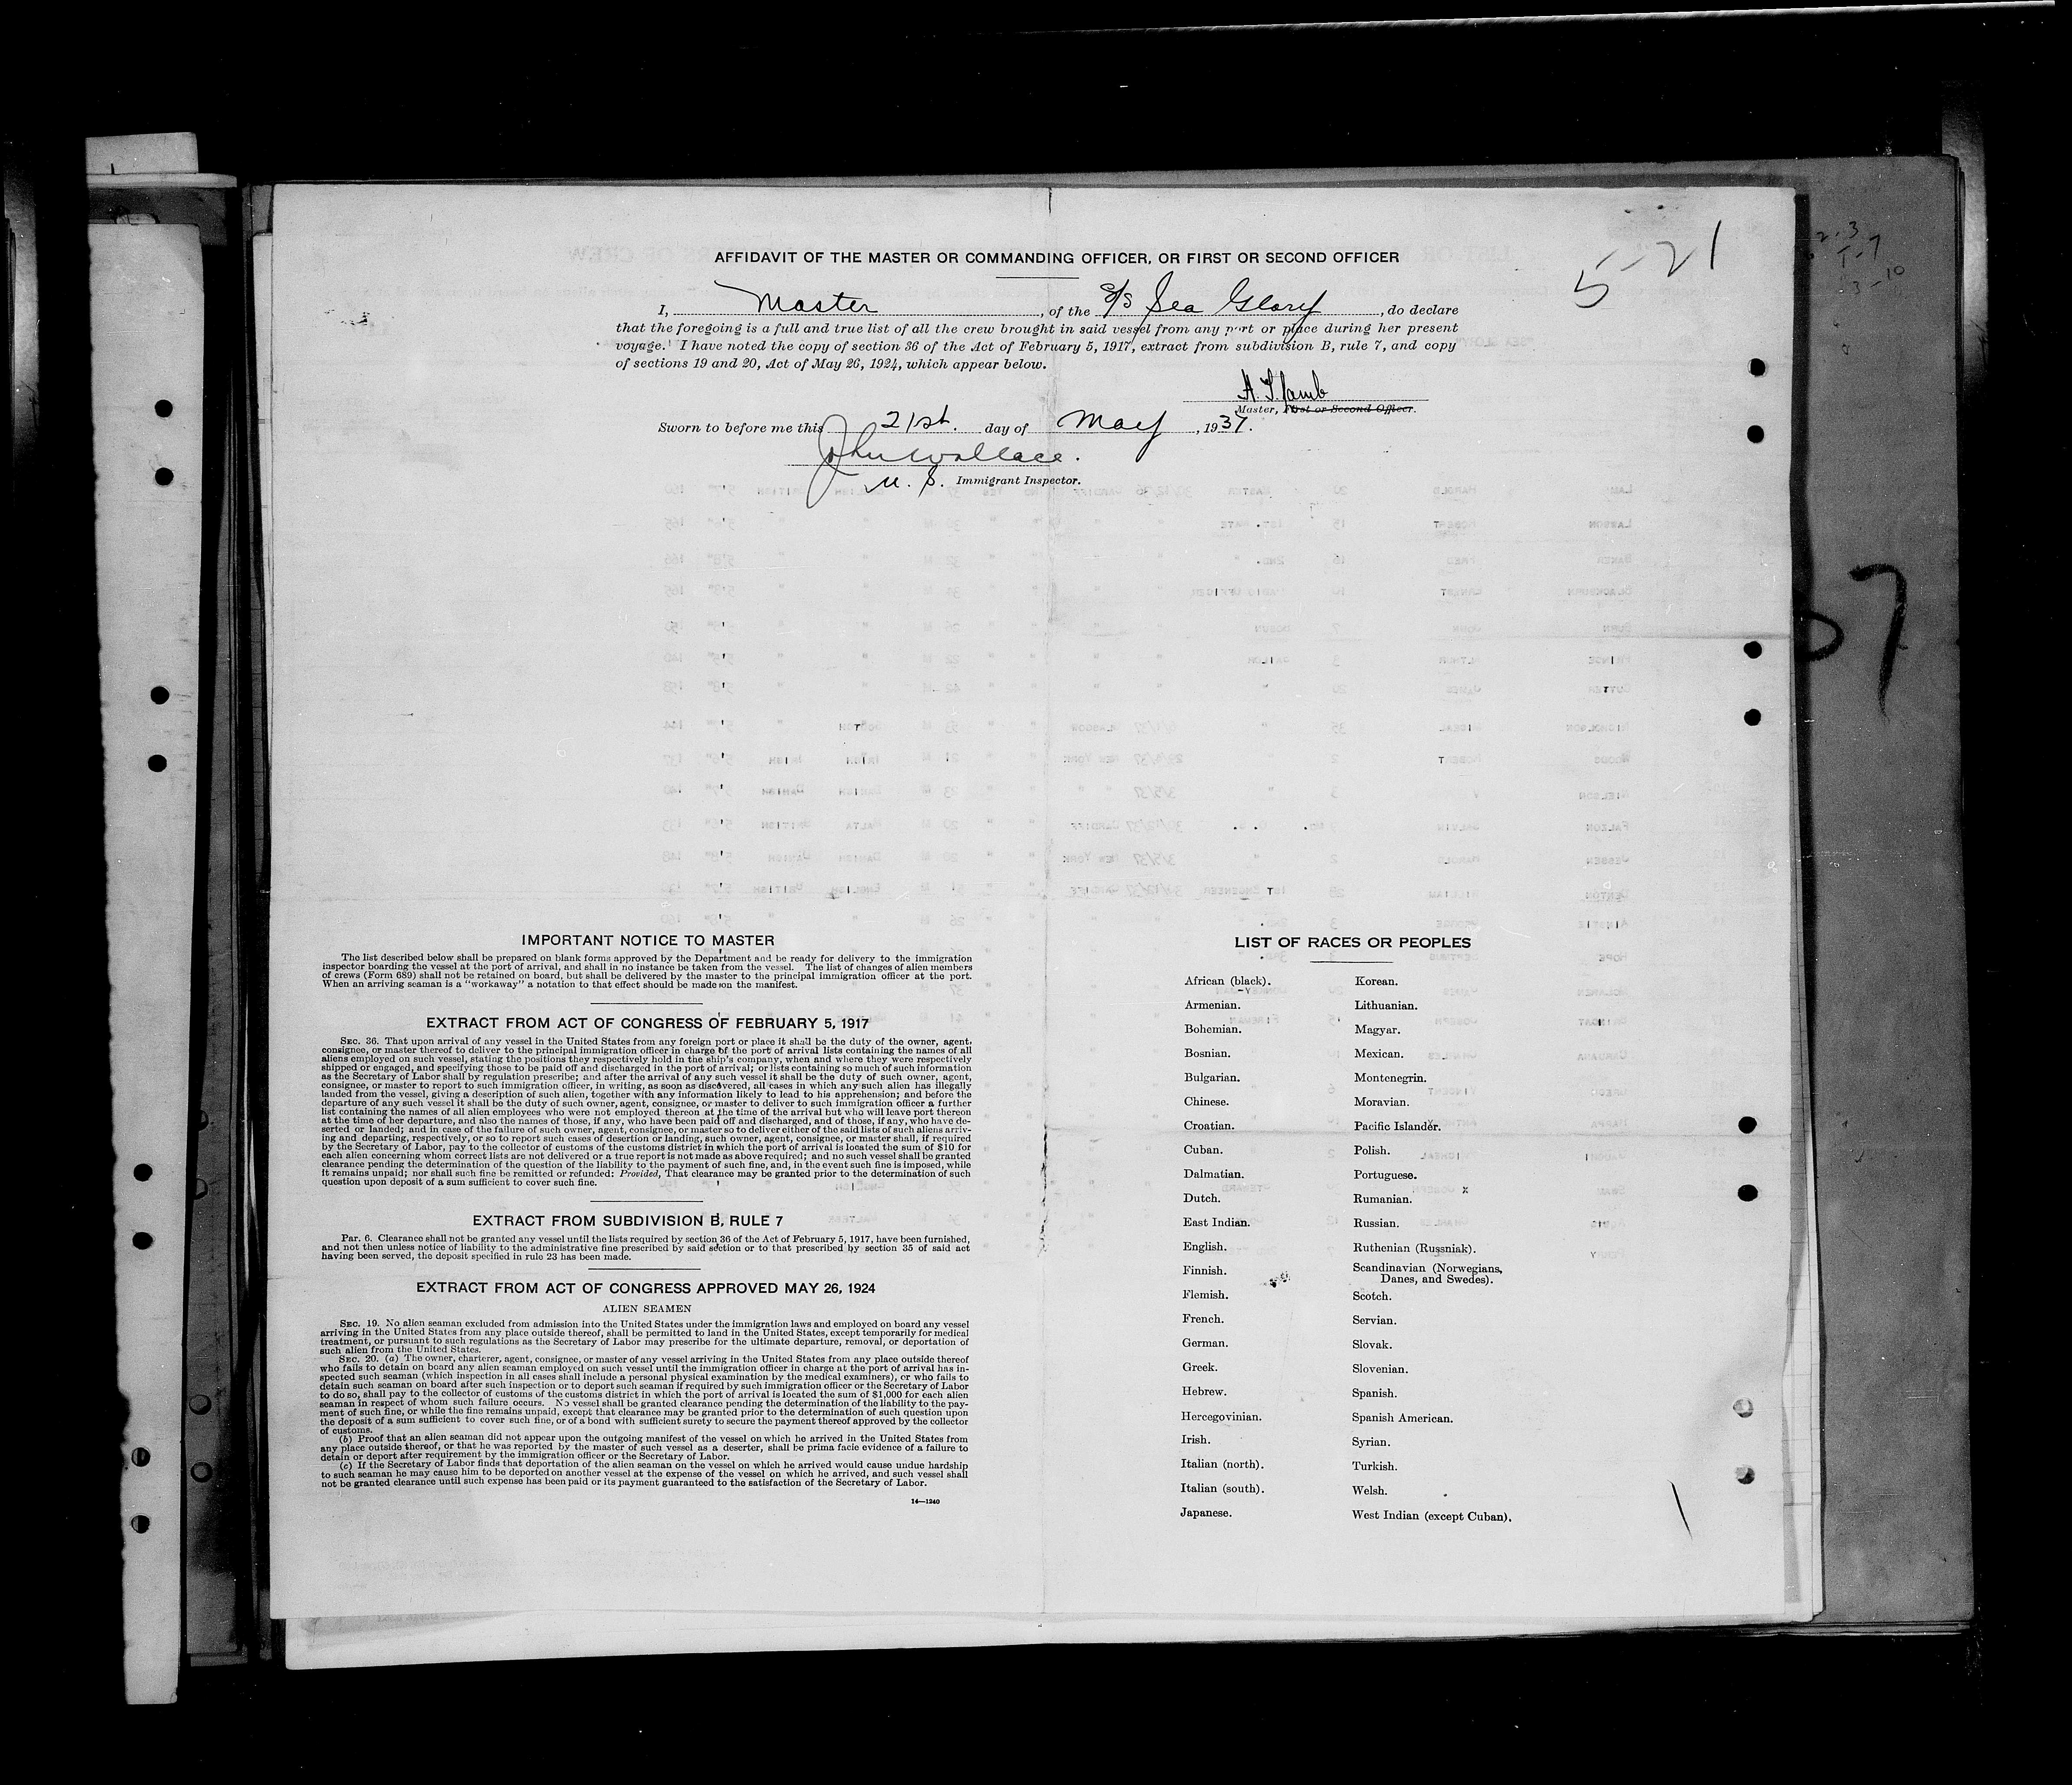 5-21
AFFIDAVIT OF THE MASTER OR COMMANDING OFFICER, OR FIRST OR SECOND OFFICER
I, Master, of the S/S Sea Glory, do declare
that the foregoing is a full and true list of all the crew brought in said vessel from any port or place during her present
voyage. I have noted the copy of section 36 of the Act of February 5, 1917, extract from subdivision B, rule 7, and copy
of sections 19 and 20, Act of May 26, 1924, which appear below.
Lamb
Master, First or Second Officer.
Sworn to before me this 21st. day of May, 1937.
John Wallace.
U. S. Immigrant Inspector.
IMPORTANT NOTICE TO MASTER
The list described below shall be prepared on blank forms approved by the Department and be ready for delivery to the immigration
inspector boarding the vessel at the port of arrival, and shall in no instance be taken from the vessel. The list of changes of alien members
of crews (Form 689) shall not be retained on board, but shall be delivered by the master to the principal immigration officer at the port.
When an arriving seaman is a "workaway" a notation to that effect should be made on the manifest.
EXTRACT FROM ACT OF CONGRESS OF FEBRUARY 5, 1917
SEC. 36. That upon arrival of any vessel in the United States from any foreign port or place it shall be the duty of the owner, agent,
consignee, or master thereof to deliver to the principal immigration officer in charge of the port of arrival lists containing the names of all
aliens employed on such vessel, stating the positions they respectively hold in the ship's company, when and where they were respectively
shipped or engaged, and specifying those to be paid off and discharged in the port of arrival; or lists containing so much of such information
as the Secretary of Labor shall by regulation prescribe; and after the arrival of any such vessel it shall be the duty of such owner, agent,
consignee, or master to report to such immigration officer, in writing, as soon as discovered, all cases in which any such alien has illegally
landed from the vessel, giving a description of such alien, together with any information likely to lead to his apprehension; and before the
departure of any such vessel it shall be the duty of such owner, agent, consignee, or master to deliver to such immigration officer a further
list containing the names of all alien employees who were not employed thereon at the time of the arrival but who will leave port thereon
at the time of her departure, and also the names of those, if any, who have been paid off and discharged, and of those, if any, who have de-
serted or landed; and in case of the failure of such owner, agent, consignee, or master so to deliver either of the said lists of such aliens arriv-
ing and departing, respectively, or so to report such cases of desertion or landing, such owner, agent, consignee, or master shall, if required
by the Secretary of Labor, pay to the collector of customs of the customs district in which the port of arrival is located the sum of $10 for
each alien concerning whom correct lists are not delivered or a true report is not made as above required; and no such vessel shall be granted
clearance pending the determination of the question of the liability to the payment of such fine, and, in the event such fine is imposed, while
it remains unpaid; nor shall such fine be remitted or refunded: Provided, That clearance may be granted prior to the determination of such
question upon deposit of a sum sufficient to cover such fine.
EXTRACT FROM SUBDIVISION B, RULE 7
Par. 6. Clearance shall not be granted any vessel until the lists required by section 36 of the Act of February 5, 1917, have been furnished,
and not then unless notice of liability to the administrative fine prescribed by said section or to that prescribed by section 35 of said act
having been served, the deposit specified in rule 23 has been made.
EXTRACT FROM ACT OF CONGRESS APPROVED MAY 26, 1924
ALIEN SEAMEN
SEC. 19. No alien seaman excluded from admission into the United States under the immigration laws and employed on board any vessel
arriving in the United States from any place outside thereof, shall be permitted to land in the United States, except temporarily for medical
treatment, or pursuant to such regulations as the Secretary of Labor may prescribe for the ultimate departure, removal, or deportation of
such alien from the United States.
SEC. 20. (a) The owner, charterer, agent, consignee, or master of any vessel arriving in the United States from any place outside thereof
who fails to detain on board any alien seaman employed on such vessel until the immigration officer in charge at the port of arrival has in-
spected such seaman (which inspection in all cases shall include a personal physical examination by the medical examiners), or who fails to
detain such seaman on board after such inspection or to deport such seaman if required by such immigration officer or the Secretary of Labor
to do so, shall pay to the collector of customs of the customs district in which the port of arrival is located the sum of $1,000 for each alien
seaman in respect of whom such failure occurs. No vessel shall be granted clearance pending the determination of the liability to the pay-
ment of such fine, or while the fine remains unpaid, except that clearance may be granted prior to the determination of such question upon
the deposit of a sum sufficient to cover such fine, or of a bond with sufficient surety to secure the payment thereof approved by the collector
of customs.
(b) Proof that an alien seaman did not appear upon the outgoing manifest of the vessel on which he arrived in the United States from
any place outside thereof, or that he was reported by the master of such vessel as a deserter, shall be prima facie evidence of a failure to
detain or deport after requirement by the immigration officer or the Secretary of Labor.
(c) If the Secretary of Labor finds that deportation of the alien seaman on the vessel on which he arrived would cause undue hardship
to such seaman he may cause him to be deported on another vessel at the expense of the vessel on which he arrived, and such vessel shall
not be granted clearance until such expense has been paid or its payment guaranteed to the satisfaction of the Secretary of Labor.
14—1240
LIST OF RACES OR PEOPLES
African (black).
Armenian.
Bohemian.
Bosnian.
Bulgarian.
Chinese.
Croatian.
Cuban.
Dalmatian.
Dutch.
East Indian.
English.
Finnish.
Flemish.
French.
German.
Greek.
Hebrew.
Hercegovinian.
Irish.
Italian (north).
Italian (south).
Japanese.
Korean.
Lithuanian.
Magyar.
Mexican.
Montenegrin.
Moravian.
Pacific Islander.
Polish.
Portuguese.
Rumanian.
Russian.
Ruthenian (Russniak).
Scandinavian (Norwegians,
Danes, and Swedes).
Scotch.
Servian.
Slovak.
Slovenian.
Spanish.
Spanish American.
Syrian.
Turkish.
Welsh.
West Indian (except Cuban).